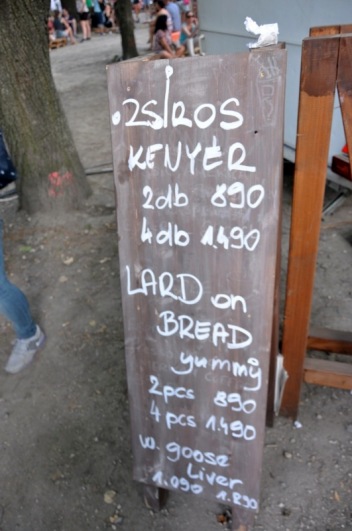 .ZSÍROS
KENYÉR
2db 890
4db 1.490
LARD on
BREAD
yummy
2pcs 890
4pcs 1.490
w. goose
Liver
1.090 1.890